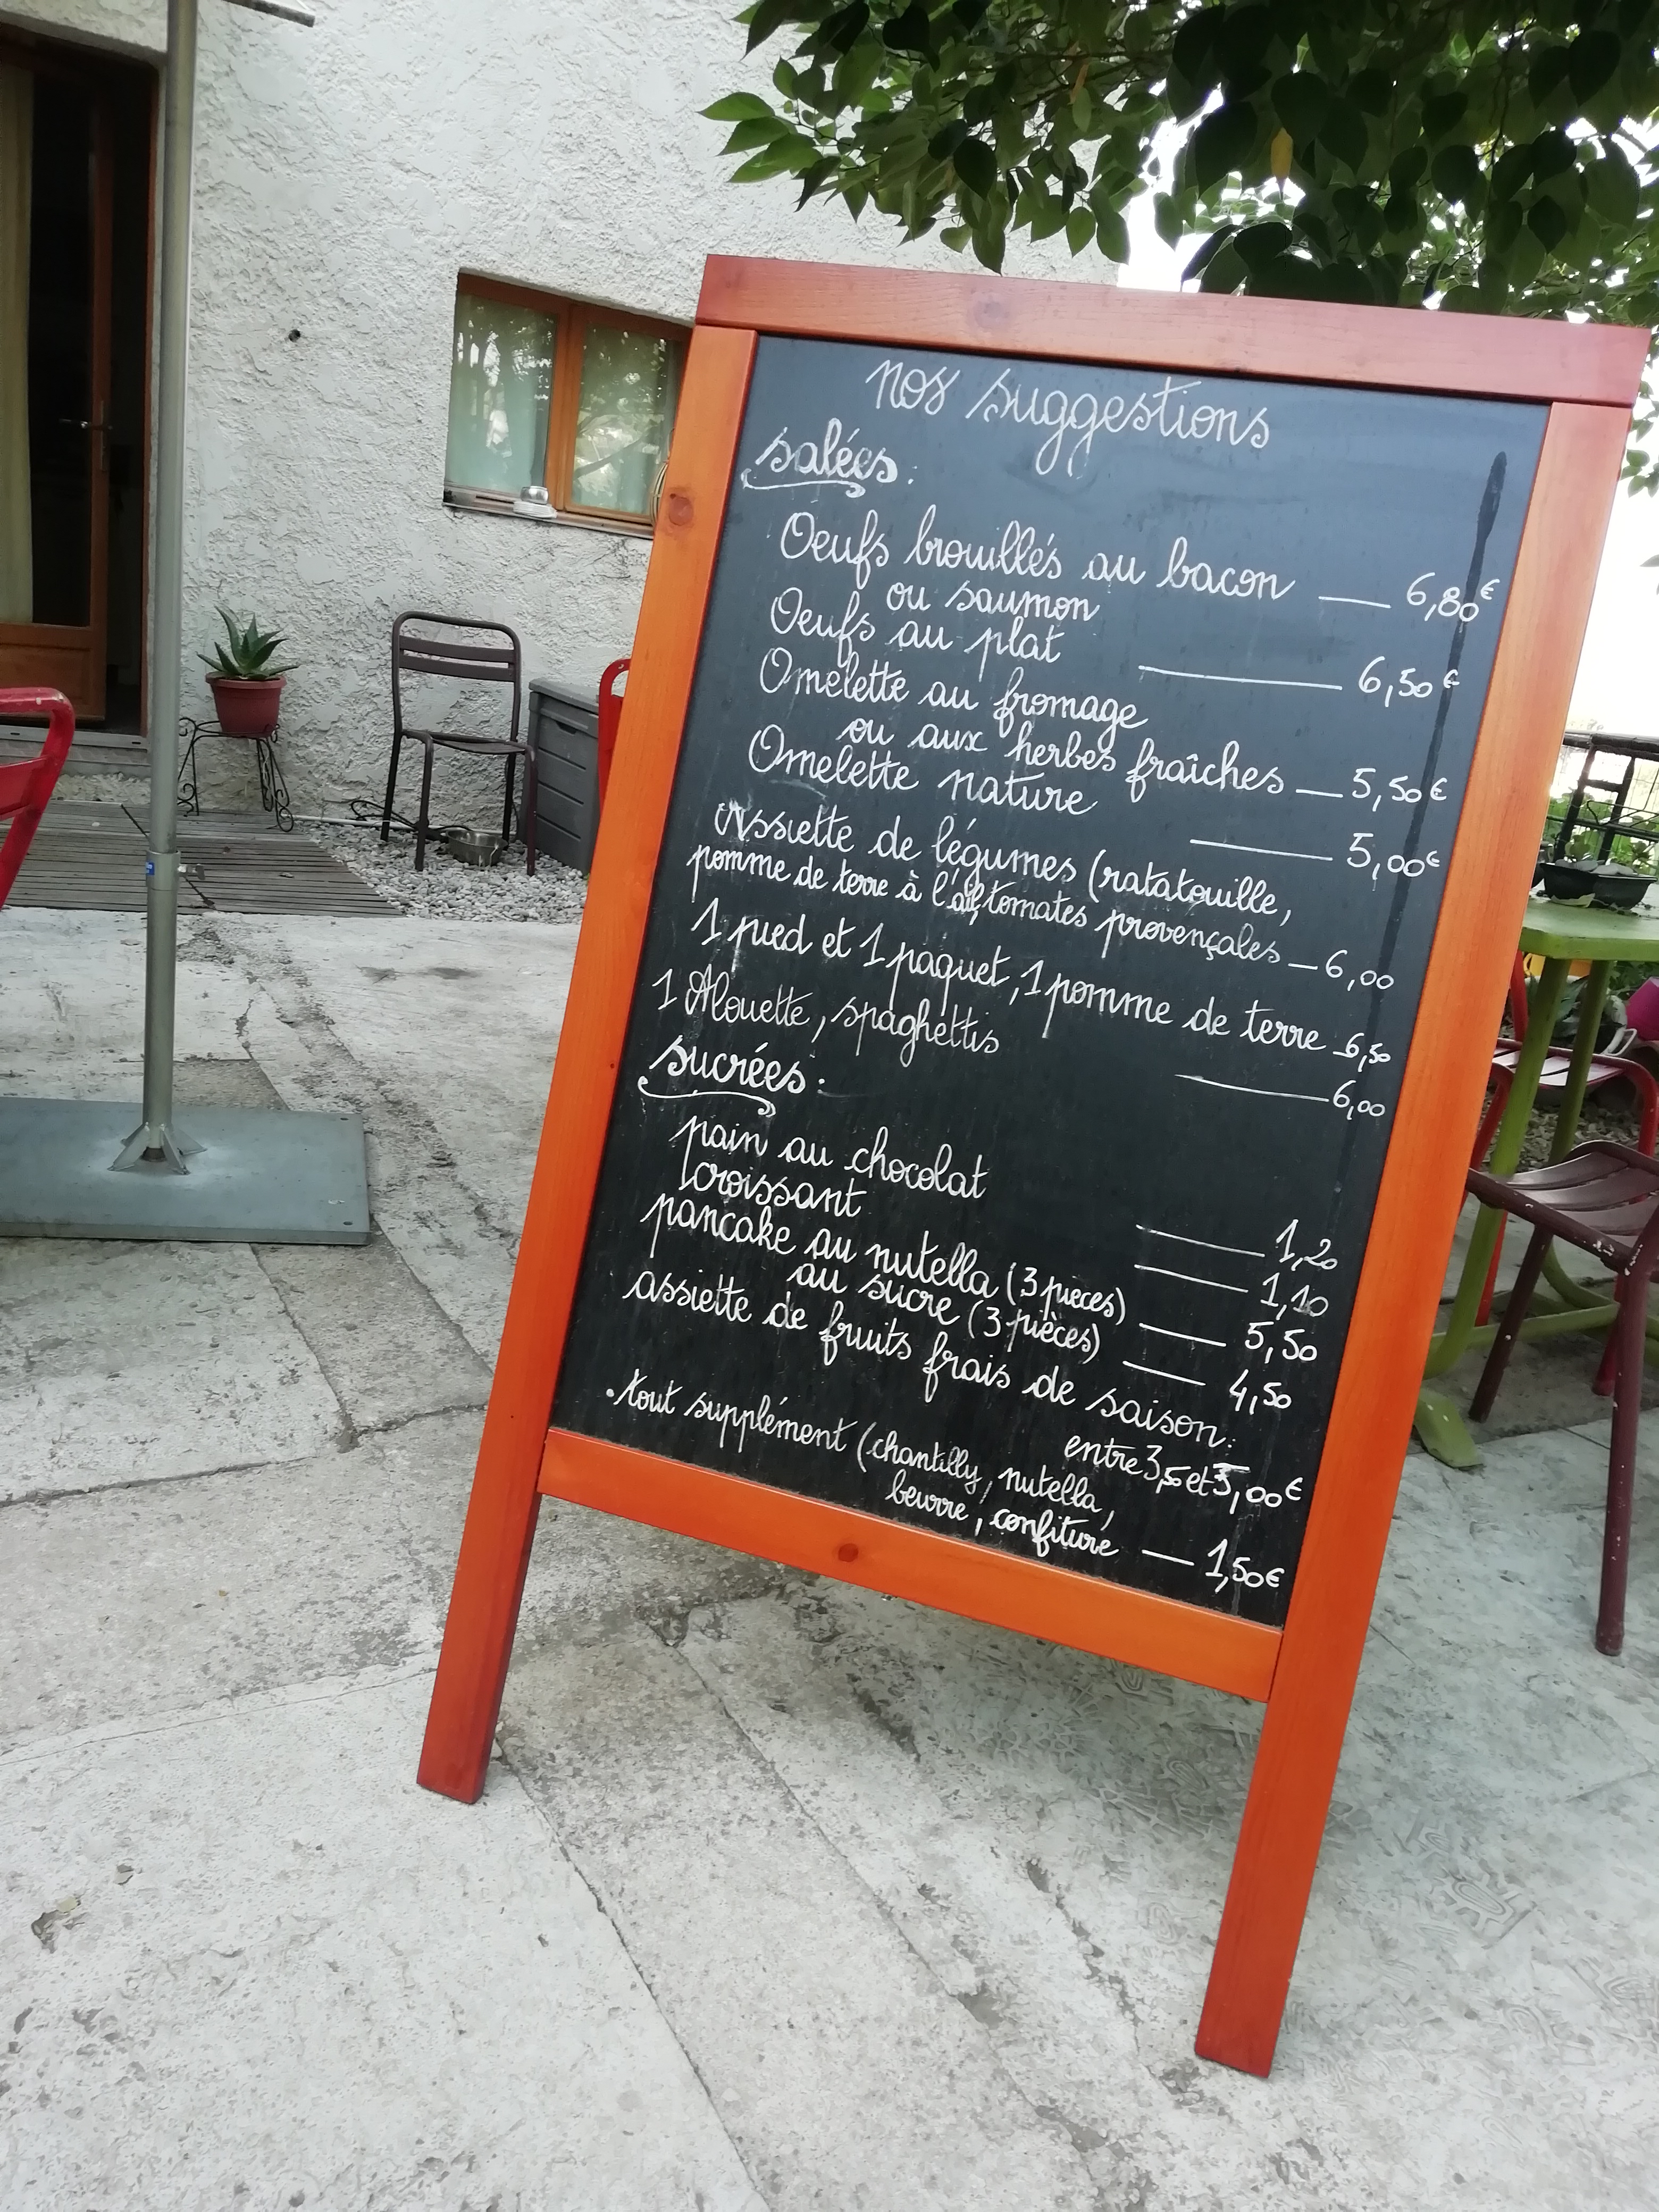 nos suggestions
salées :
Oeufs brouillés au bacon — 6,80€
ou saumon
Oeufs au plat — 6,50€
Omelette au fromage
ou aux herbes fraîches — 5,50€
Omelette nature — 5,00€
Assiette de légumes (ratatouille,
pomme de terre à l'ail, tomates provençales — 6,00
1 pied et 1 paquet, 1 pomme de terre — 6,50
1 Alouette, spaghettis — 6,00
sucrées :
pain au chocolat — 1,20
croissant — 1,10
pancake au nutella (3 pieces) — 5,50
au sucre (3 pièces) — 4,50
assiette de fruits frais de saison :
entre 3,5 et 5,00€
. tout supplément (chantilly, nutella,
beurre, confiture — 1,50€